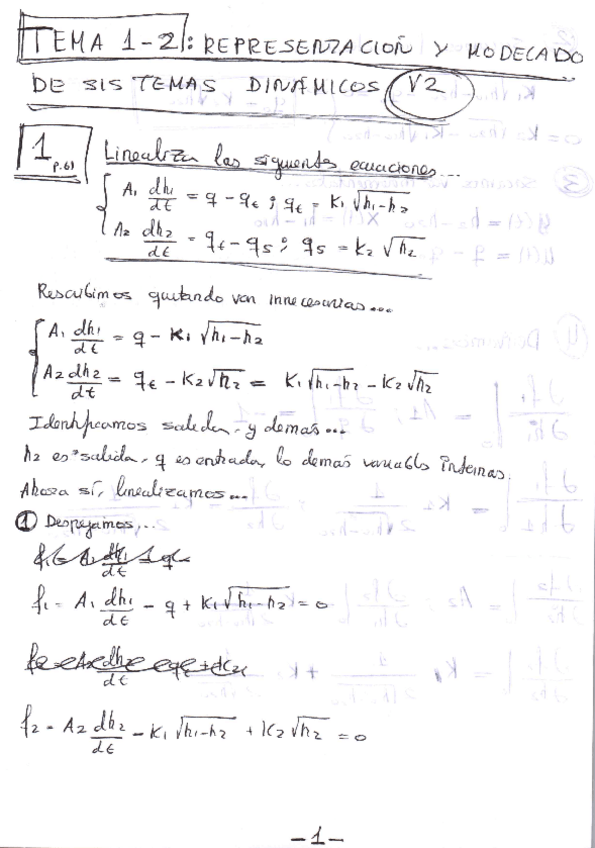 TEMA 1-2: REPRESENTACIÓN Y MODELADO
DE SISTEMAS DINÁMICOS V2
1 p.61 Linealizar las siguientes ecuaciones...
A₁ dh₁/dt = q - qₜ ; qₜ = K₁√(h₁-h₂)
A₂ dh₂/dt = qₜ - q₅ ; q₅ = K₂√h₂
Rescribimos quitando var innecesarias...
A₁ dh₁/dt = q - K₁√(h₁-h₂)
A₂ dh₂/dt = qₜ - K₂√h₂ = K₁√(h₁-h₂) - K₂√h₂
Identificamos salida, y demas...
h₂ es salida, q es entrada, lo demás variables internas.
Ahora sí, linealizamos...
① Despejamos...
f₁ = A₁ dh₁/dt - q + K₁√(h₁-h₂) = 0
f₂ = A₂ dh₂/dt - K₁√(h₁-h₂) + K₂√h₂ = 0
-1-